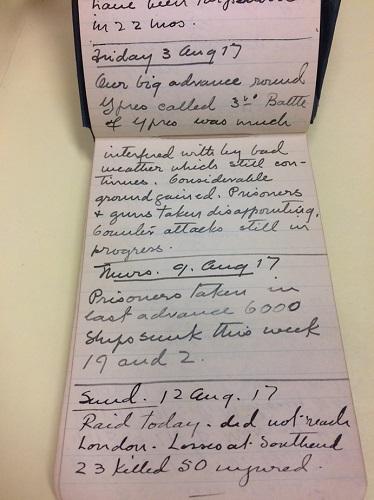 have been
in 22 mos.
Friday 3 Aug 17
Our big advance round
Ypres called 3rd Battle
of Ypres was much
interfered with by bad
weather which still con-
tinues. Considerable
ground gained. Prisoners
& guns taken disappointing.
Counter attacks still in
progress.
Thurs. 9. Aug 17
Prisoners taken in
last advance 6000
Ships sunk this week
19 and 2.
Sund. 12 Aug. 17
Raid today. did not reach
London. Losses at Southend
23 killed 50 injured.